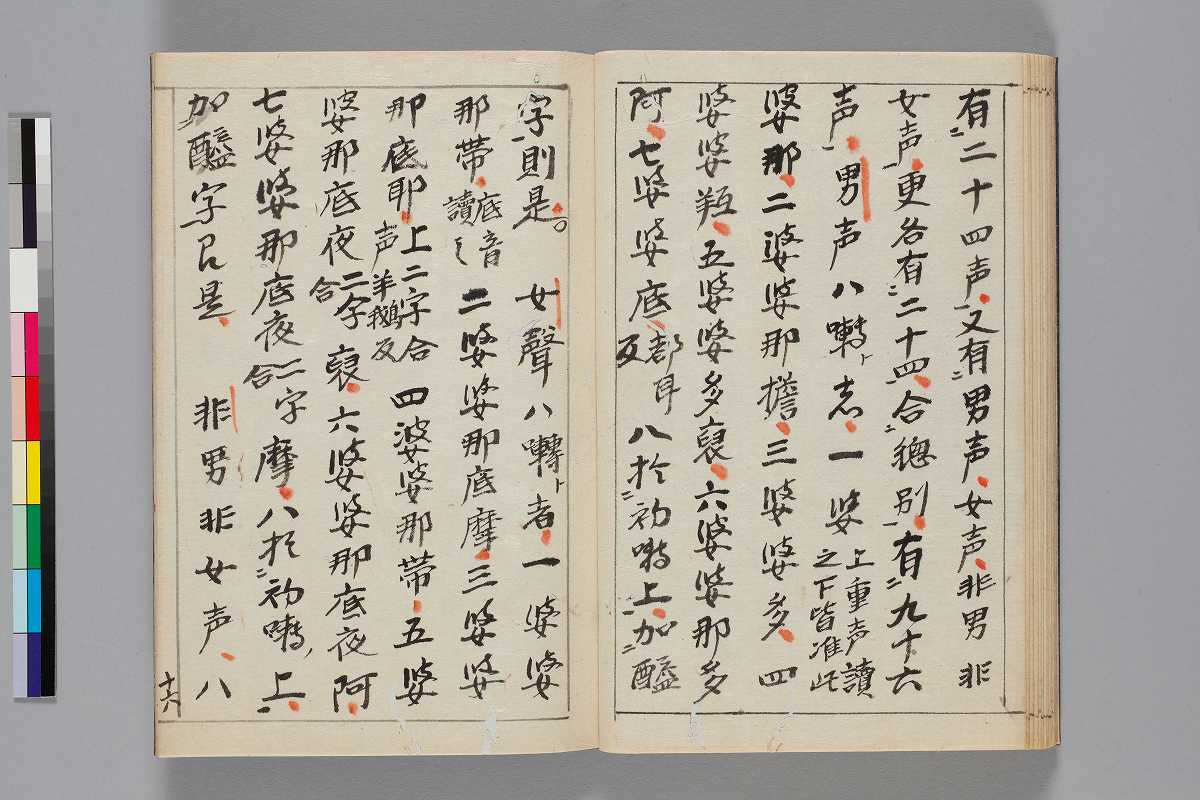 有二十四声又有男声女声非男非
女声更各有二十四合総別有九十六
声男声八囀志一婆上重声讀之下皆准此
婆那二婆婆那擔三婆婆多四
婆婆羝五婆婆多裒六婆婆那多
阿七婆婆底都耳反八扵初囀上加醯
字則是女聲八囀者一婆婆
那帶底音讀之二婆婆那底摩三婆婆
那底耶上二字合声羊鵝反四婆婆那帶五婆
婆那底夜二字合裒六婆婆那底夜阿
七婆婆那底夜二字合摩八扵初囀上
加醯字即是非男非女声八
十六